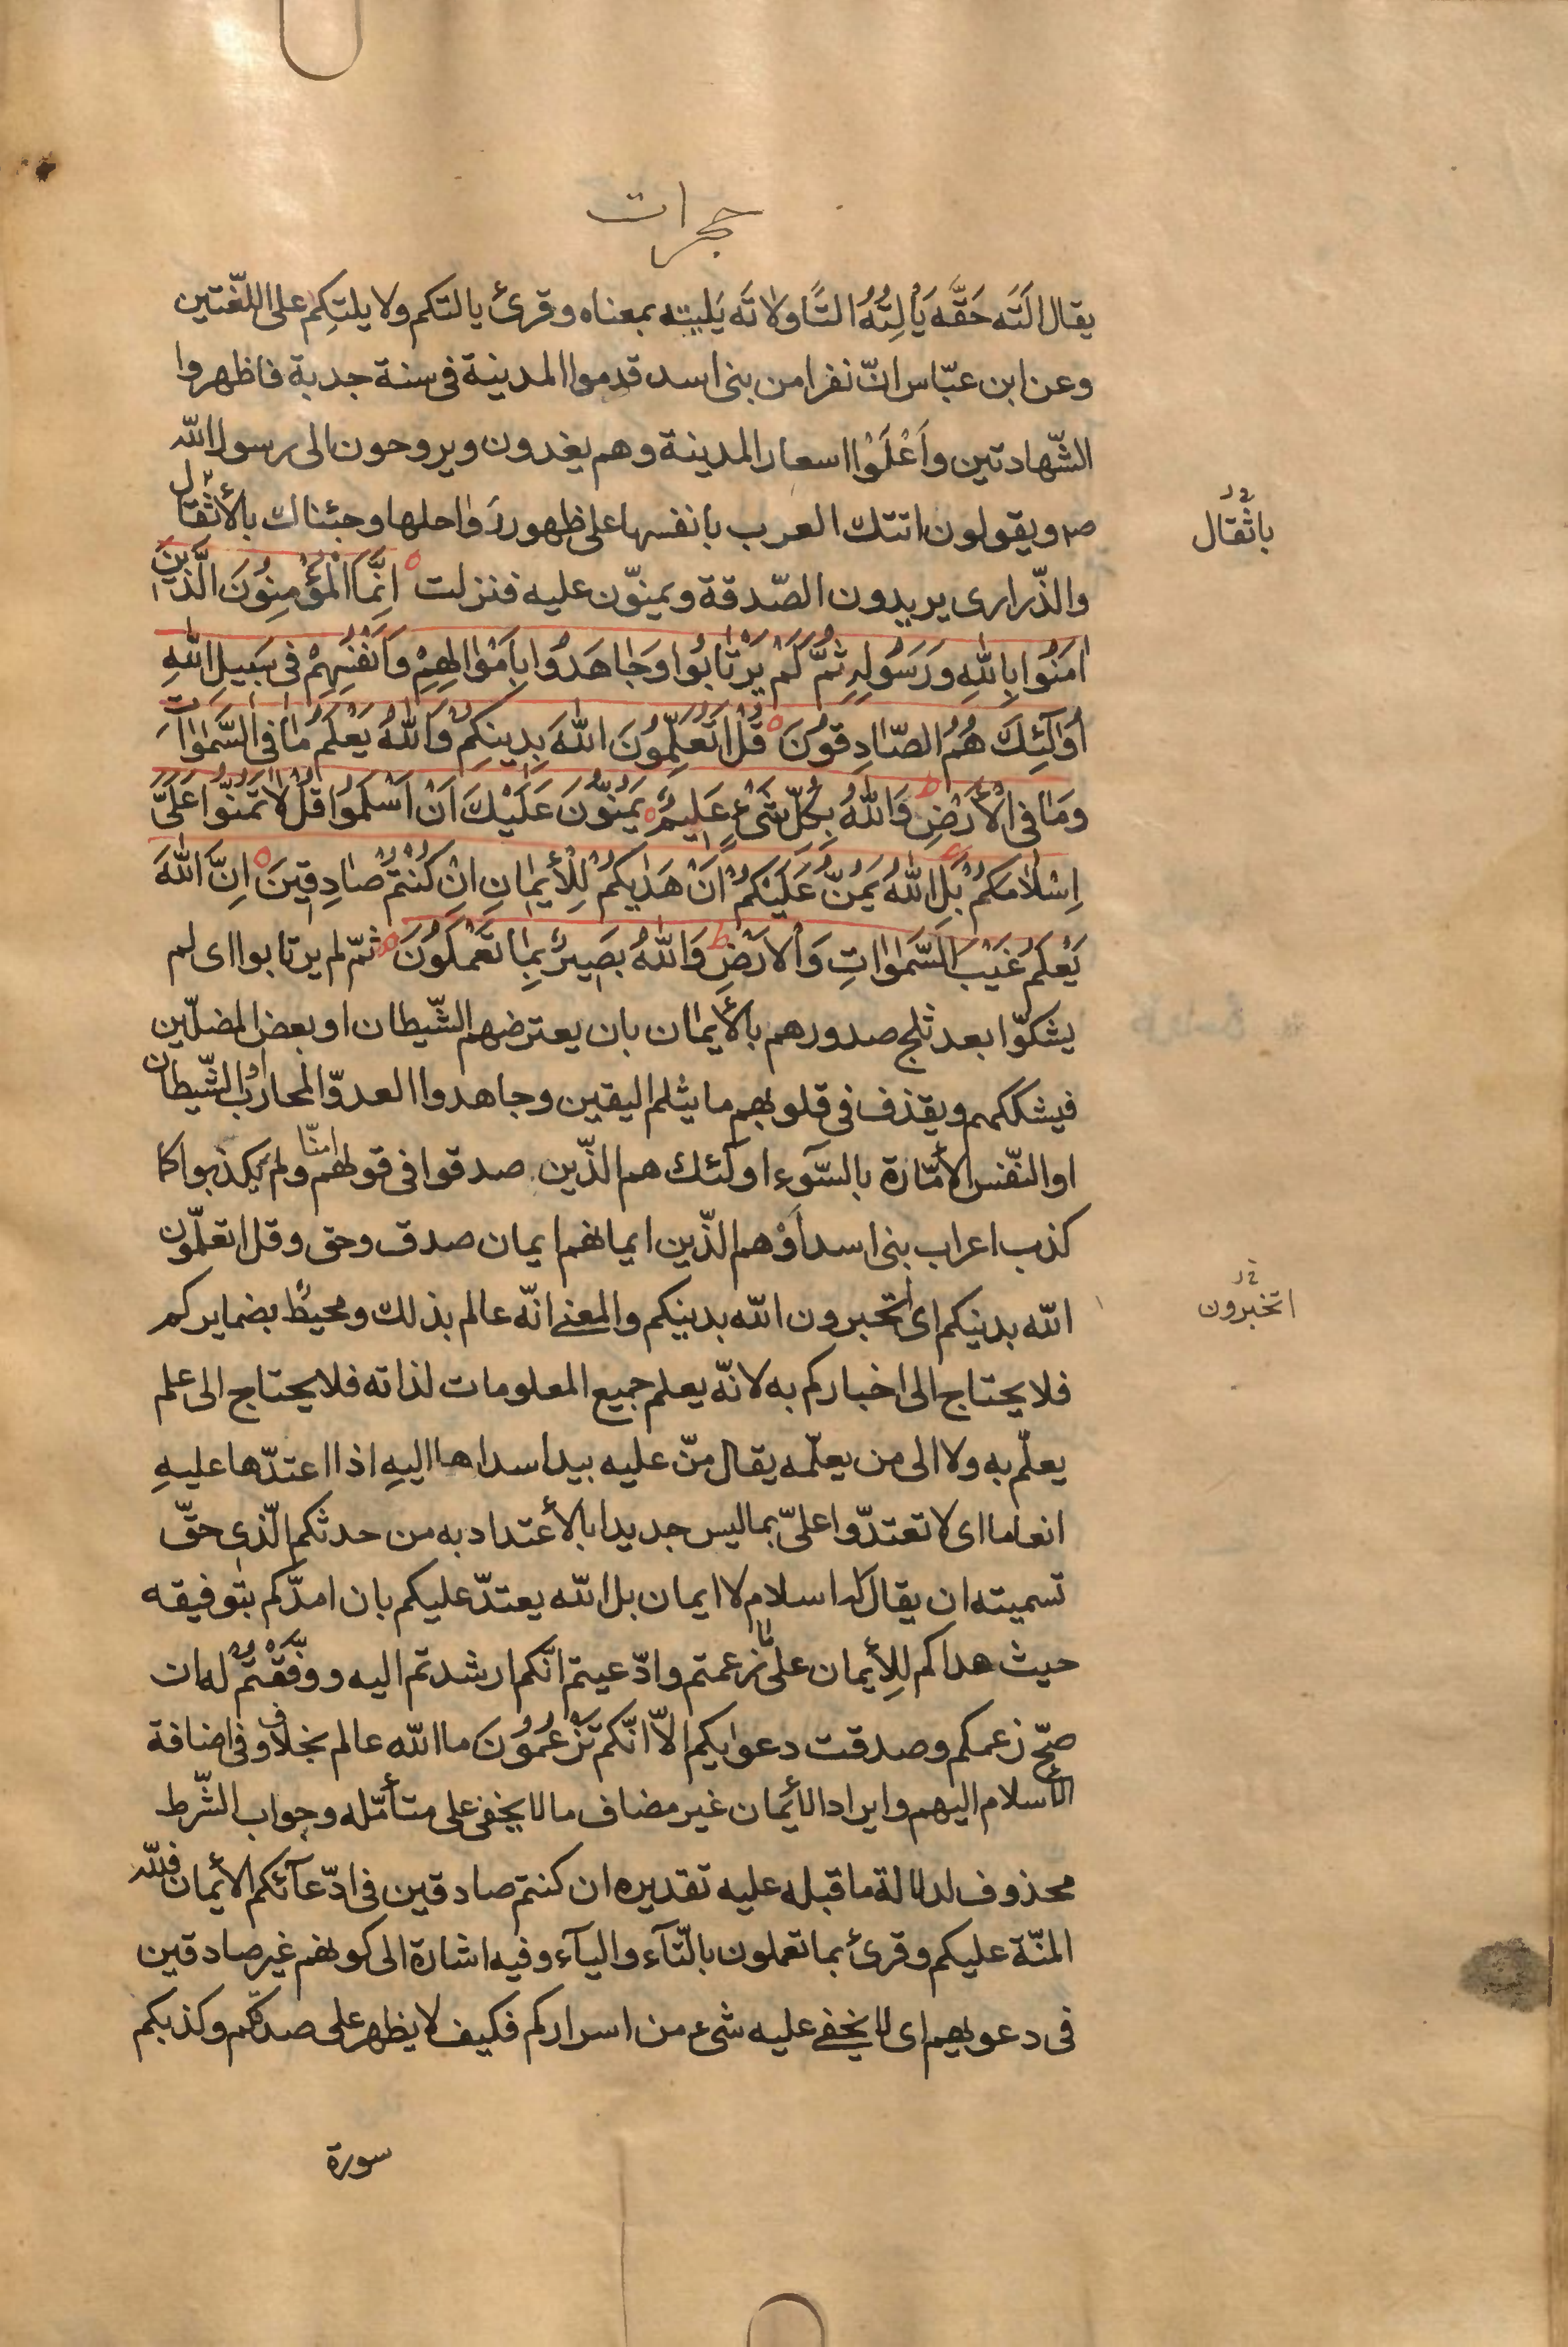 حجرات
يقال الَتَه حَقَّه يَأْلِتُهُ التًا ولاتَه يَليته بمعناه وقرئ يالتكم ولا يلتكِم على اللغّتين
وعن ابن عبّاس انّ نفرا من بنى اسد قدموا المدينة فى سنة جدبة فاظهروا
الشّهادتين واَغْلَوْا اسعار المدينة وهم يغدون ويروحون الى رسول اللّه
ص ويقولون اتتك العرب بانفسها على ظهور رَواحلها وجئناك بالأثقال
باثقال
والذّرارى يريدون الصّدقة ويمنّون عليه فنزلت اِنَّمَا الْمُؤْمِنُونَ الَّذينَ
اٰمَنُوا بِاللّٰهِ وَرَسُولِهِ ثُمَّ لَمْ يَرْتٰابُوا وَجٰاهَدُوا بِاَمْوٰالِهِمْ وَاَنْفُسِهِمْ فى سَبيلِ اللّٰهِ
اُولٰٓئِكَ هُمُ الصّٰادِقُونَ قُلْ اَتُعَلِّمُونَ اللّٰهَ بِدِينِكُمْ وَاللّٰهُ يَعْلَمُ مٰا فى السَّمٰوٰاتِ
وَمٰا فى الْأَرْضِ وَاللّٰهُ بِكُلِّ شَىْءٍ عَلِيمٌ يَمُنُّونَ عَلَيْكَ اَنْ اَسْلَمُوا قُلْ لاٰ تَمُنُّوا عَلَىَّ
اِسْلاٰمَكُمْ بَلِ اللّٰهُ يَمُنُّ عَلَيْكُمْ اَنْ هَدٰيكُمْ لِلْأيمٰانِ اِنْ كُنْتُمْ صٰادِقِينَ اِنَّ اللّٰهَ
يَعْلَمُ غَيْبَ السَّمٰوٰاتِ وَالْاَرْضِ وَاللّٰهُ بَصِيرٌ بِمٰا تَعْمَلُونَ ثمّ لم يرتابوا اى لم
يشكّوا بعد ثلج صدورهم بالأيمان بان يعترضهم الشّيطان او بعض المضلّين
فيشككهم ويقذف فى قلوبهم ما يثلم اليقين وجاهدوا العدوّ المحارب او الشّيطان
او النّفس الأمّارة بالسّوء اولٓئك هم الذّين صدقوا فى قولهم امنّا ولم يكذبوا كما
كذب اعراب بنى اسد اَوْهم الذّين ايمانهم ايمان صدق وحق وقل اتعلّمون
اللّه بدينكم اى اتخبرون اللّه بدينكم والمعنى انّه عالم بذلك ومحيط بضمايركم
اتخبرون
فلا يحتاج الى اخباركم به لانّه يعلم جميع المعلومات لذاته فلا يحتاج الى علم
يعلّم به ولا الى من يعلّمه يقال منّ عليه بيد اسداها اليهِ اذا اعتدّها عليهِ
انعاما اى لا تعتدّوا علىّ بما ليس جديدا بالأعتداد به من حدثكم الّذى حقّ
تسميته ان يقال له اسلام لا ايمان بل اللّه يعتدّ عليكم بان امدّكم بتوفيقه
حيث هداكم للِأيمان على ما زعمتم وادّعيتم انّكم ارشدتم اليه ووفّقْتُمْ له ان
صحّ زعمكم وصدقت دعوٰيكم الاّ انّكم تَزْعُمُونَ ما اللّه عالم بخلافه وفى اضافة
الأسلام اليهم وايراد الأيمان غير مضاف ما لا يخفى على متأمّله وجواب الشّرط
محذوف لدلالة ما قبله عليه تقديره ان كنتم صادقين فى ادّعآئكم الأيمان فللّه
المنّة عليكم وقرئ بما تعملون بالتّآء واليآء وفيه اشارة الى كونهم غير صادقين
فى دعويهم اى لا يخفى عليه شىء من اسراركم فكيف لا يظهر على صدقكم وكذبكم
سورة